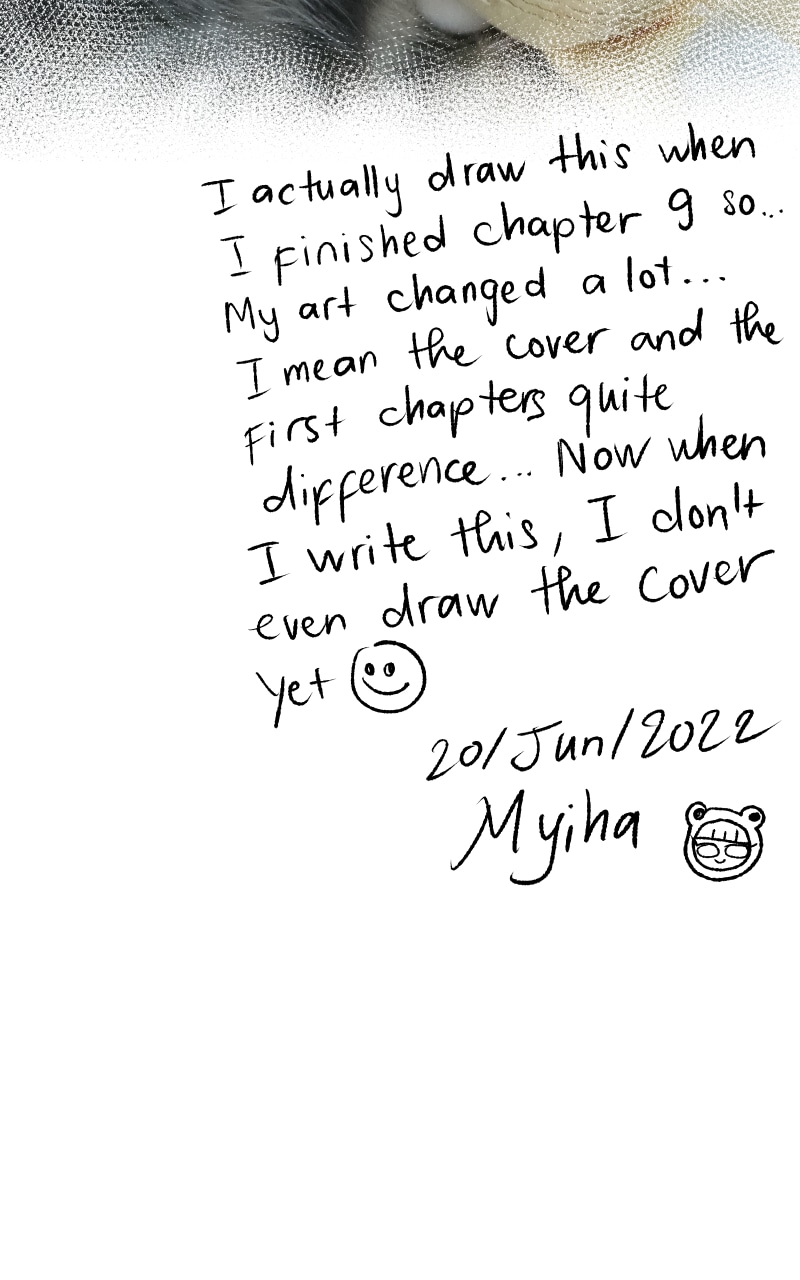 I actually draw this when
I finished chapter 9 so...
My art changed a lot...
I mean the cover and the
first chapters quite
difference... Now when
I write this, I don't
even draw the cover
yet
20/Jun/2022
Myiha